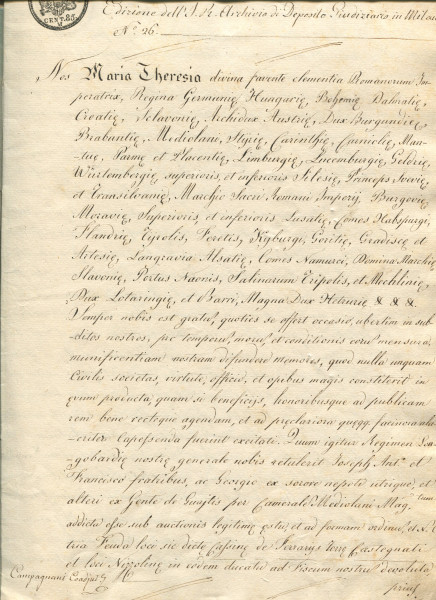 CENT. 85.
Edizione dell'I. R. Archivio di Deposito Giudiziario in Milano
N.º 26.
Nos Maria Theresia divina favente clementia Romanorum Im-
peratrix, Regina Germanię, Hungarię, Bohemię Dalmatię,
Croatię, Sclavonię, Archidux Austrię, Dux Burgundię,
Brabantię, Mediolani, Styrię, Carinthię, Carniolię, Man-
tuę, Parmę et Placentię, Limburgię, Lucemburgię, Geldrię,
Würtembergię, superioris, et inferioris Silesię, Princeps Svevię,
et Transilvanię, Marchio Sacri Romani Imperij, Burgovię,
Moravię, Superioris, et inferioris Lusatię, Comes Habspurgi,
Flandrię, Tyrolis, Ferretis, Kyburgi, Goritię, Gradiscę, et
Artesię, Langravia Alsatię, Comes Namurci, Domina Marchię
Slavonię, Portus Naonis, Salinarum Tripolis, et Mechlinię,
Dux Lotaringię, et Barri, Magna Dux Hetrurię & & &.
Semper nobis est gratu, quoties se offert occasio, ubertim in sub-
ditos nostros, pro temporu, moru, et conditionis eoru mensura,
munificentiam nostram difundere memores, quod nulla unquam
Civilis societas, virtute, officio, et opibus magis constiterit in
ęvum producta, quam si beneficijs, honoribusque ad publicam
rem bene recteque agendam, et ad pręclariora quęqq. facinora
Capessenda fuerint excitatę. Quum igitur Regimen Lon-
gobardię nostrę generale nobis retulerit Joseph Ant.º et
Francisco fratribus, ac Georgio ex sorore nepote utrique, et
alteri ex Gente de per Cameralem Mediolani Mag.tum
addicta esse sub auctionis legitimę, et ad formam ordinu, et
tria Feuda loci sic dicte Cassine de Ferrarijs, Castegnati
et loci in eodem ducatu ad Fiscum nostru devoluta,
prius